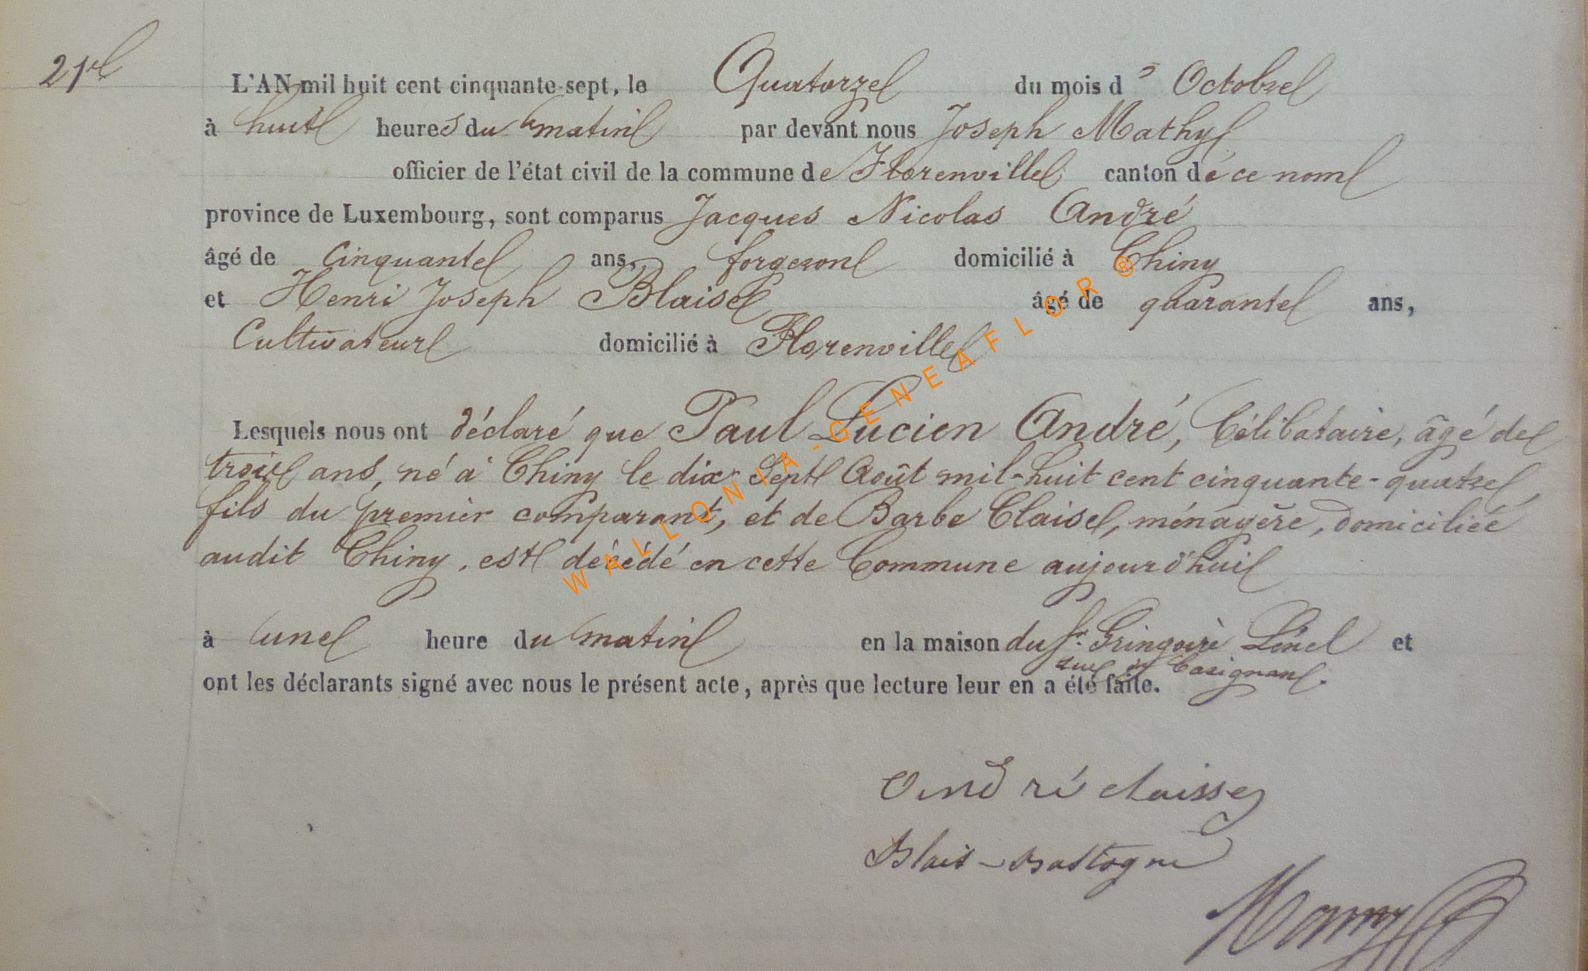 21e
L'AN mil huit cent cinquante-sept, le Quatorze du mois d' Octobre
à huit heures du matin par devant nous Joseph Mathy
officier de l'état civil de la commune de Florenville canton de ce nom
province de Luxembourg, sont comparus Jacques Nicolas André
âgé de Cinquante ans, forgeron domicilié à Chiny
et Henri Joseph Blaise âgé de quarante ans,
Cultivateur domicilié à Florenville
Lesquels nous ont déclaré que Paul Lucien André, Célibataire, âgé de
trois ans, né à Chiny le dix Sept Août mil-huit cent cinquante-quatre,
fils du premier comparant, et de Barbe Claise, ménagère, domiciliée
audit Chiny, est décédé en cette Commune aujourd'hui
à une heure du matin en la maison du Sr. Gringoire et
rue de Carignan.
ont les déclarants signé avec nous le présent acte, après que lecture leur en a été faite.
André claisse
Blais-Bastogne
WALLONIA-GENEAFLOR®